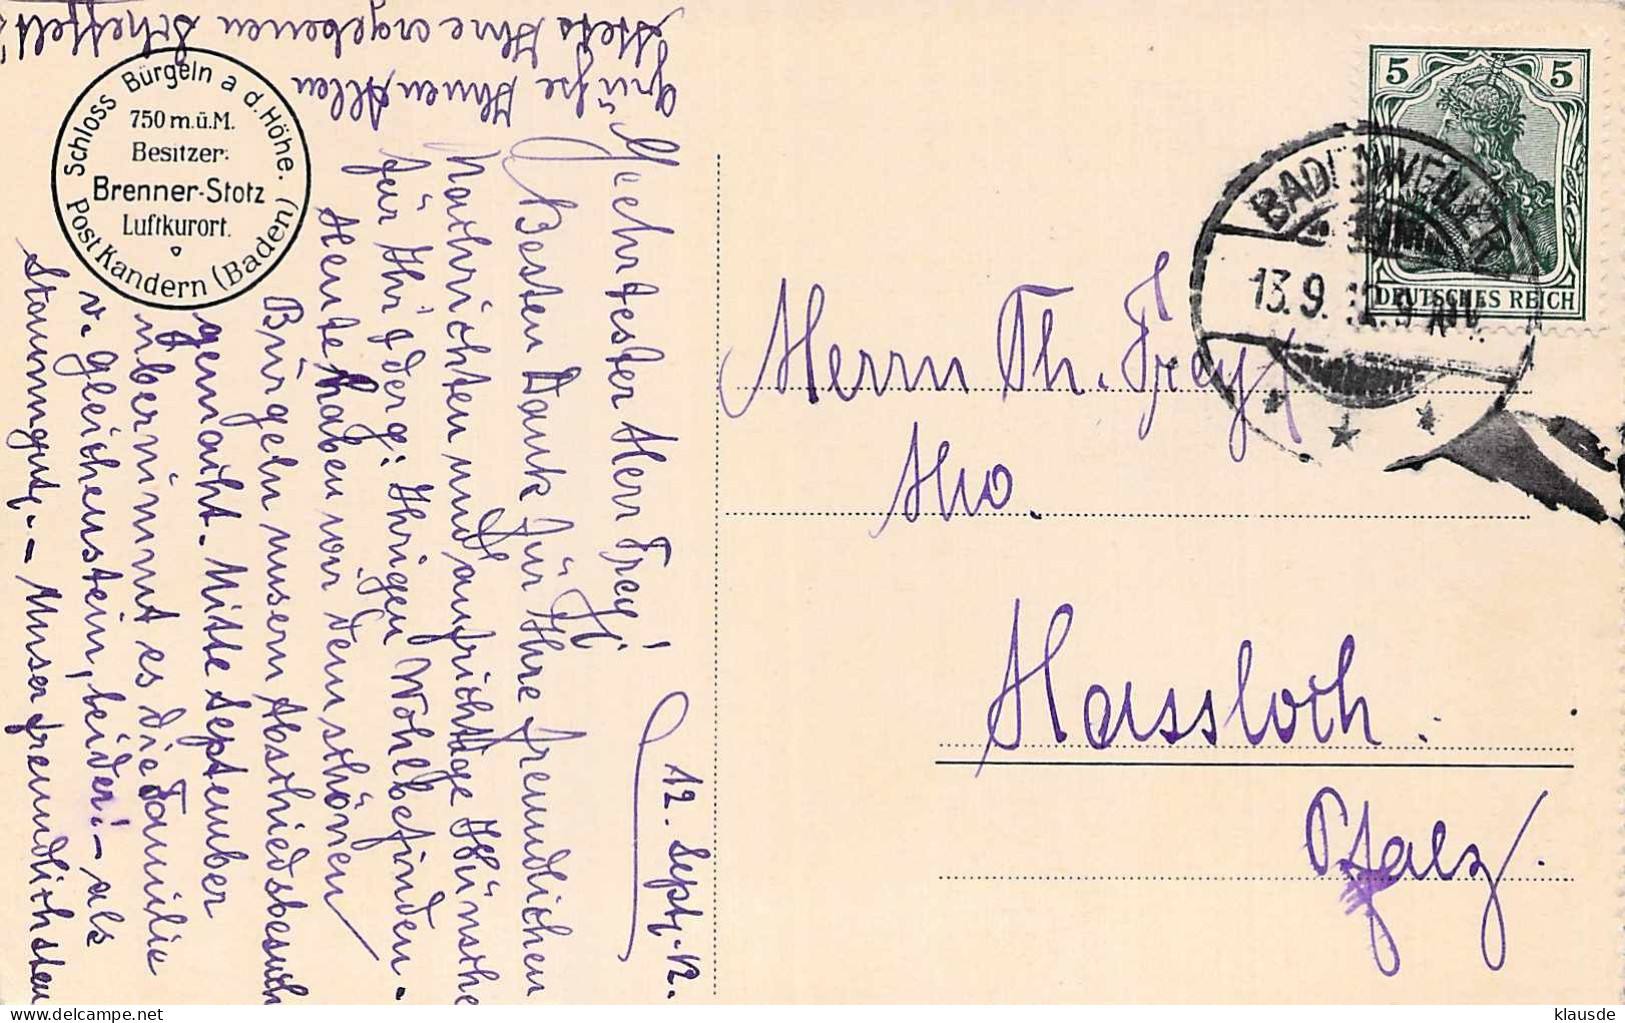 Schloss Bürgeln a. d. Höhe.
750 m.ü.M.
Besitzer:
Brenner-Stotz
Luftkurort.
Post Kandern (Baden)
12. Septr. 12.
Geehrtester Herr Frey!
Besten Dank für Ihre freundlichen
Nachrichten und aufrichtige Wünsche
für Ihr & der g: Ihrigen Wohlbefinden.
Heute haben wir dem schönen
Bürgeln unsern Abschiedsbesuch
gemacht. Mitte September
übernimmt es die Familie
v. Gleichenstein, beider! - als
Stammgut. - Unser freundlichsten
Grüße Ihnen Allen
stets Ihre ergebenen Scheffelt's
5 5
DEUTSCHES REICH
BADENWEILER
13.9.12. 9
Herrn Th. Frey
Hassloch.
Pfalz.
klausde